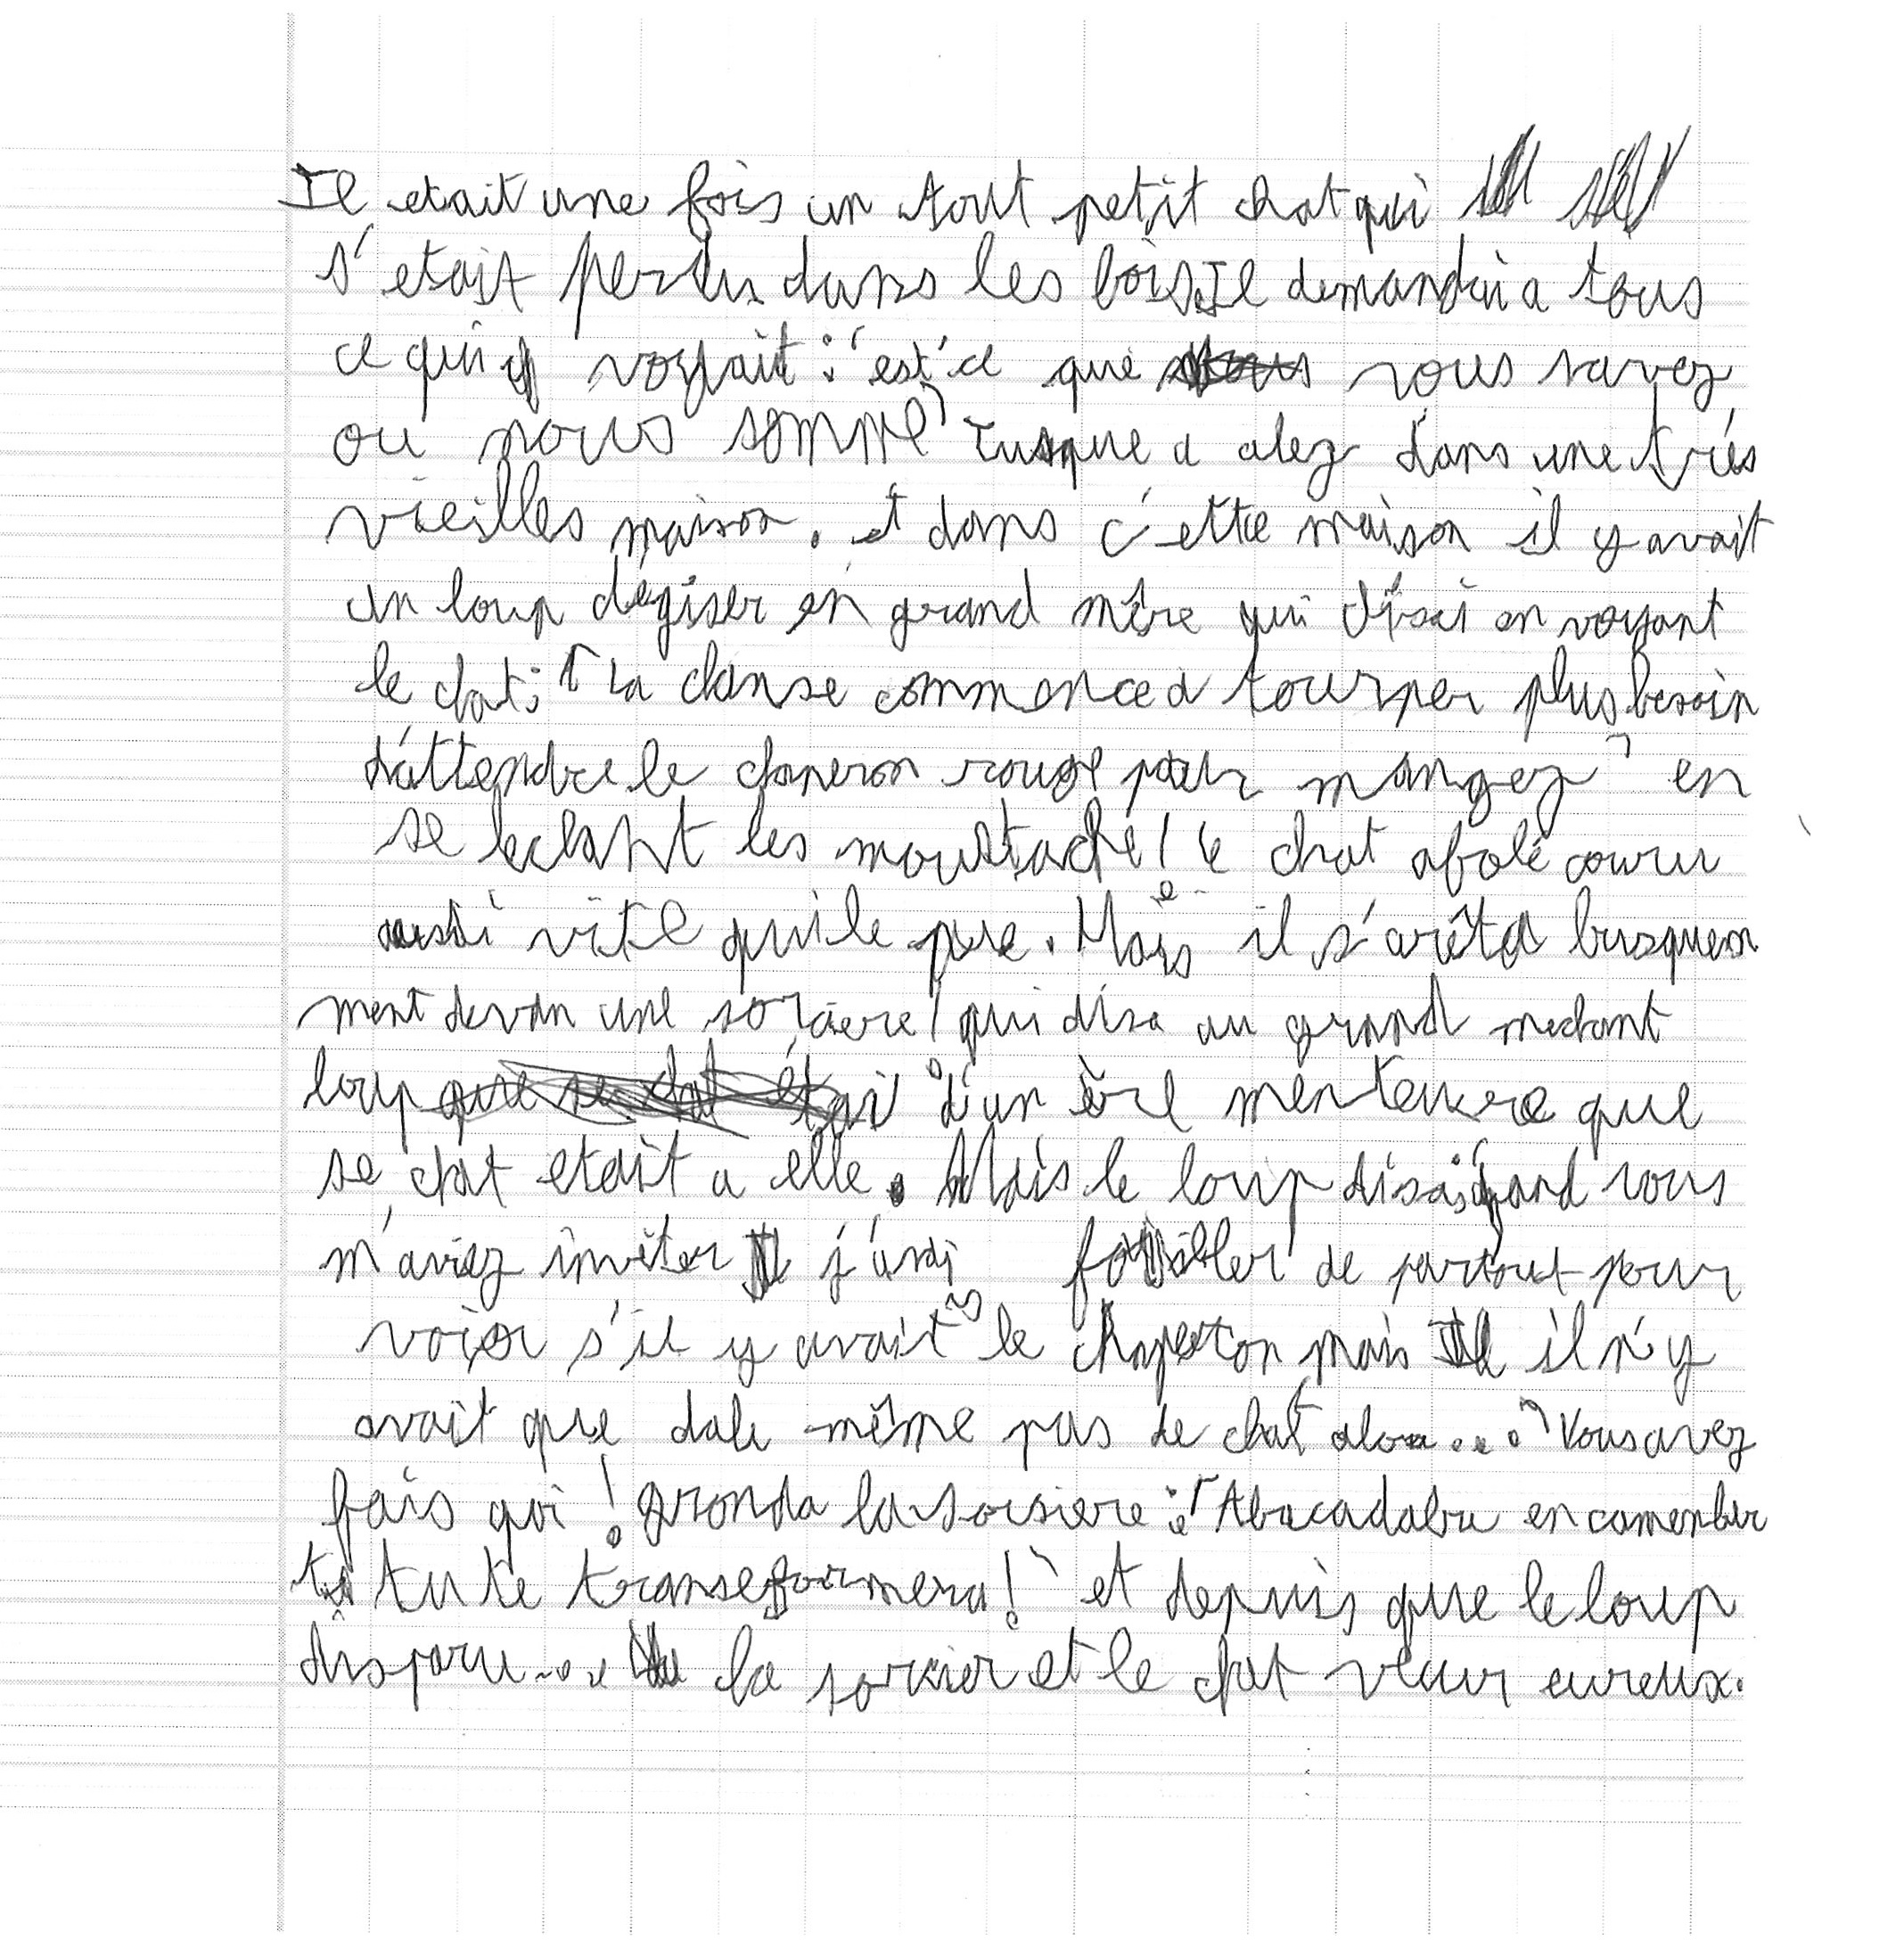 Il etait une fois un tout petit chat qui
s'etait perdu dans les bois. Il demandai a tous
ce qui voyait : "est'ce que vous savez
ou nous somme" Jusque a alez dans une très
vieilles maison. et dans c'ette maison il y avait
un loup dégiser en grand mère qui disai en voyant
le chat : "La chanse commence a tourner plus besoin
d'attendre le chaperon rouge pour mangez" en
se lechant les moustache ! le chat afolé couru
aussi vite qui le pue. Mais il s'arêta busquem
ment devan une sorciere ! qui disa au grand mechant
loup d'un ère menteure que
se chat etait a elle. Mais le loup disai : "quand vous
m'aviez inviter j'avai fouiller de partout pour
voier s'il y avait le chaperon mais il n'y
avait que dale même pas de chat alor..." Vous avez
fais qoi ! gronda la sorsiere : "Abracadabra en camenber
tu te transeformera !" et depuis que le loup
disparu... la sorcier et le chat vécur eureux.